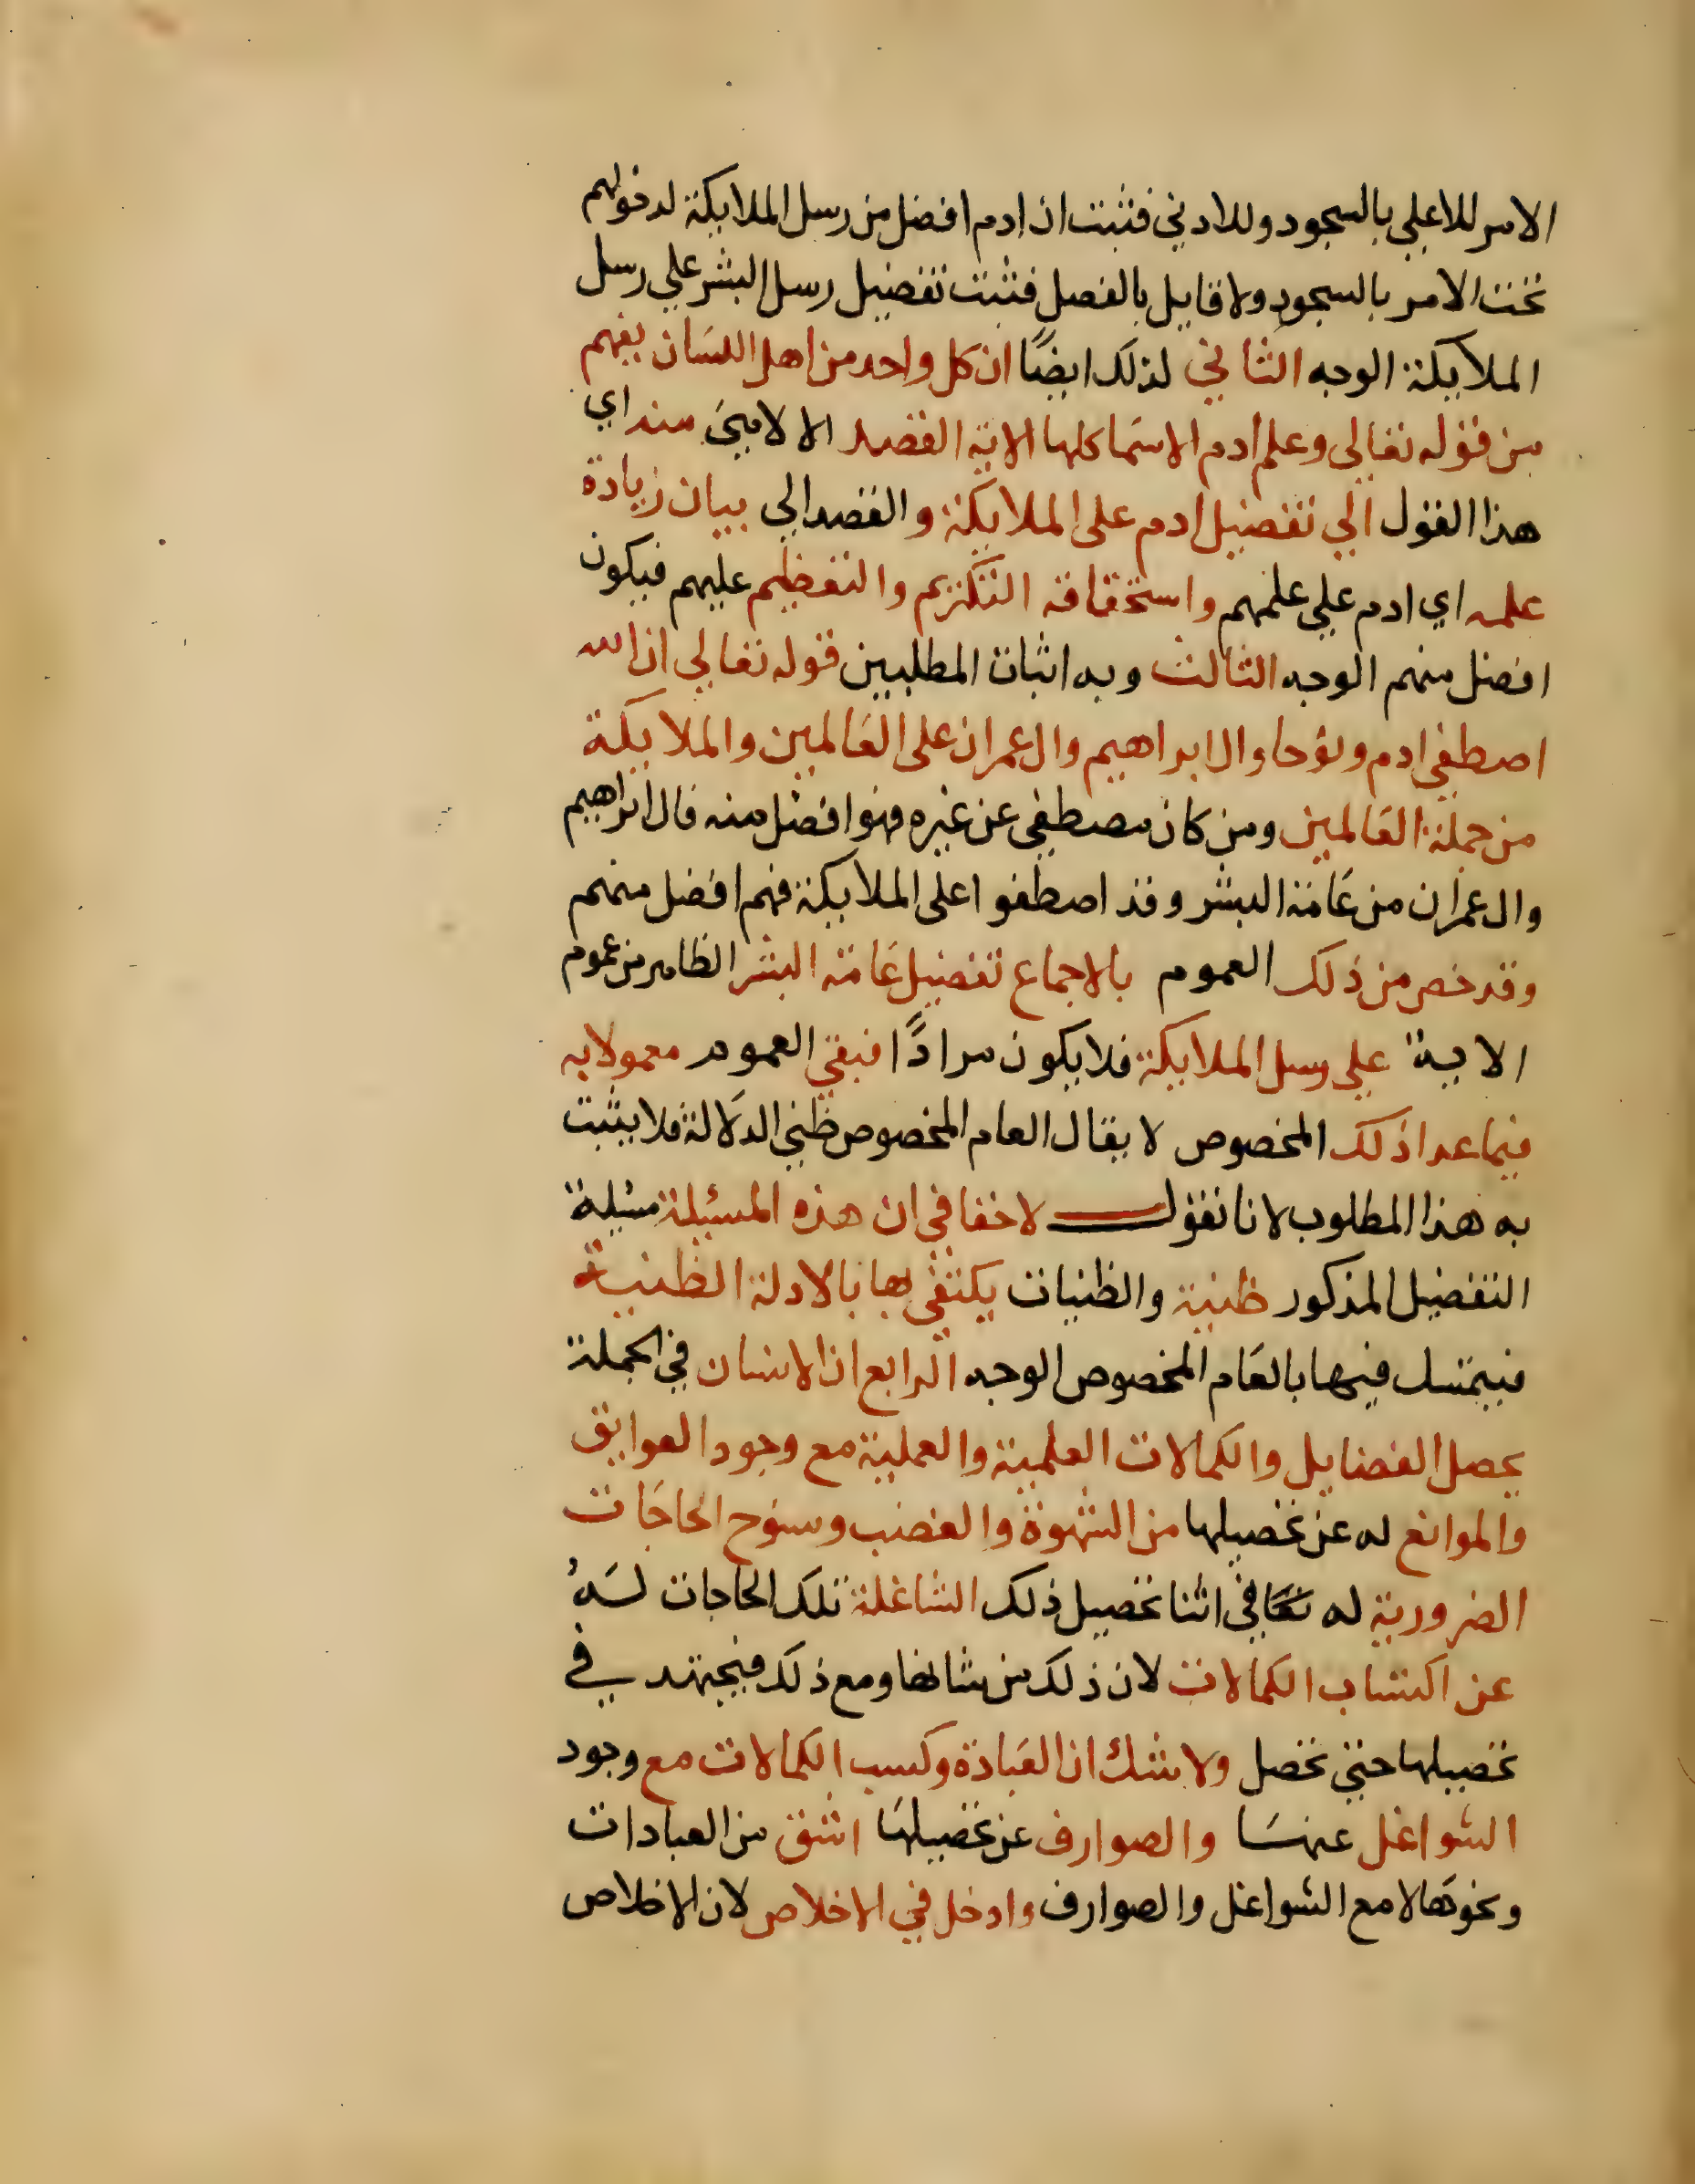 الامر للاعلي بالسجود وللادني فثبت ان ادم افضل من رسل الملايكة لدخولهم
تحت الامر بالسجود ولا قايل بالفصل فثبت تفضيل رسل البشر علي رسل
الملايكة الوجه الثاني لذلك ايضًا ان كل واحد من اهل اللسان يفهم
من قوله تعالي وعلم ادم الاسما كلها الاية القصد الا لاهي منه اي
هذا القول الي تفضيل ادم على الملايكة والقصد الي بيان زيادة
علمه اي ادم علي علمهم واستحقاقه التكريم والتعظيم عليهم فيكون
افضل منهم الوجه الثالث وبه اثبات المطلبين قوله تعالي ان الله
اصطفي ادم ونوحا وال ابراهيم وال عمران على العالمين والملايكة
من جملة العالمين ومن كان مصطفي عن غيره فهو افضل منه فال ابراهيم
وال عمران من عامة البشر وقد اصطفوا على الملايكة فهم افضل منهم
وقد خص من ذلك العموم بالاجماع تفضيل عامة البشر الظاهر من عموم
الاية علي رسل الملايكة فلا يكون مرادًا فبقي العموم معمولا به
فيما عدا ذلك المخصوص لا يقال العام المخصوص ظني الدلالة فلا يثبت
به هذا المطلوب لانا نقول لا خفا في ان هذه المسيلة مسيلة
التفضيل المذكور ظنية والظنيات يكتفي بها بالادلة الظنية
فيتمسك فيها بالعام المخصوص الوجه الرابع ان الانسان في الجملة
يحصل الفضايل والكمالات العلمية والعملية مع وجود العوايق
والموانع له عن تحصيلها من الشهوة والغضب وسنوح الحاجات
الضرورية له في اثنا تحصيل ذلك الشاغلة تلك الحاجات لَهُ
عن اكتساب الكمالات لان ذلك من شانها ومع ذلك فيجتهد في
تحصيلها حتي تحصل ولا شك ان العبادة وكسب الكمالات مع وجود
الشواغل عنها والصوارف عن تحصيلها اشق من العبادات
ونحوها لا مع الشواغل والصوارف وادخل في الاخلاص لان الاخلاص